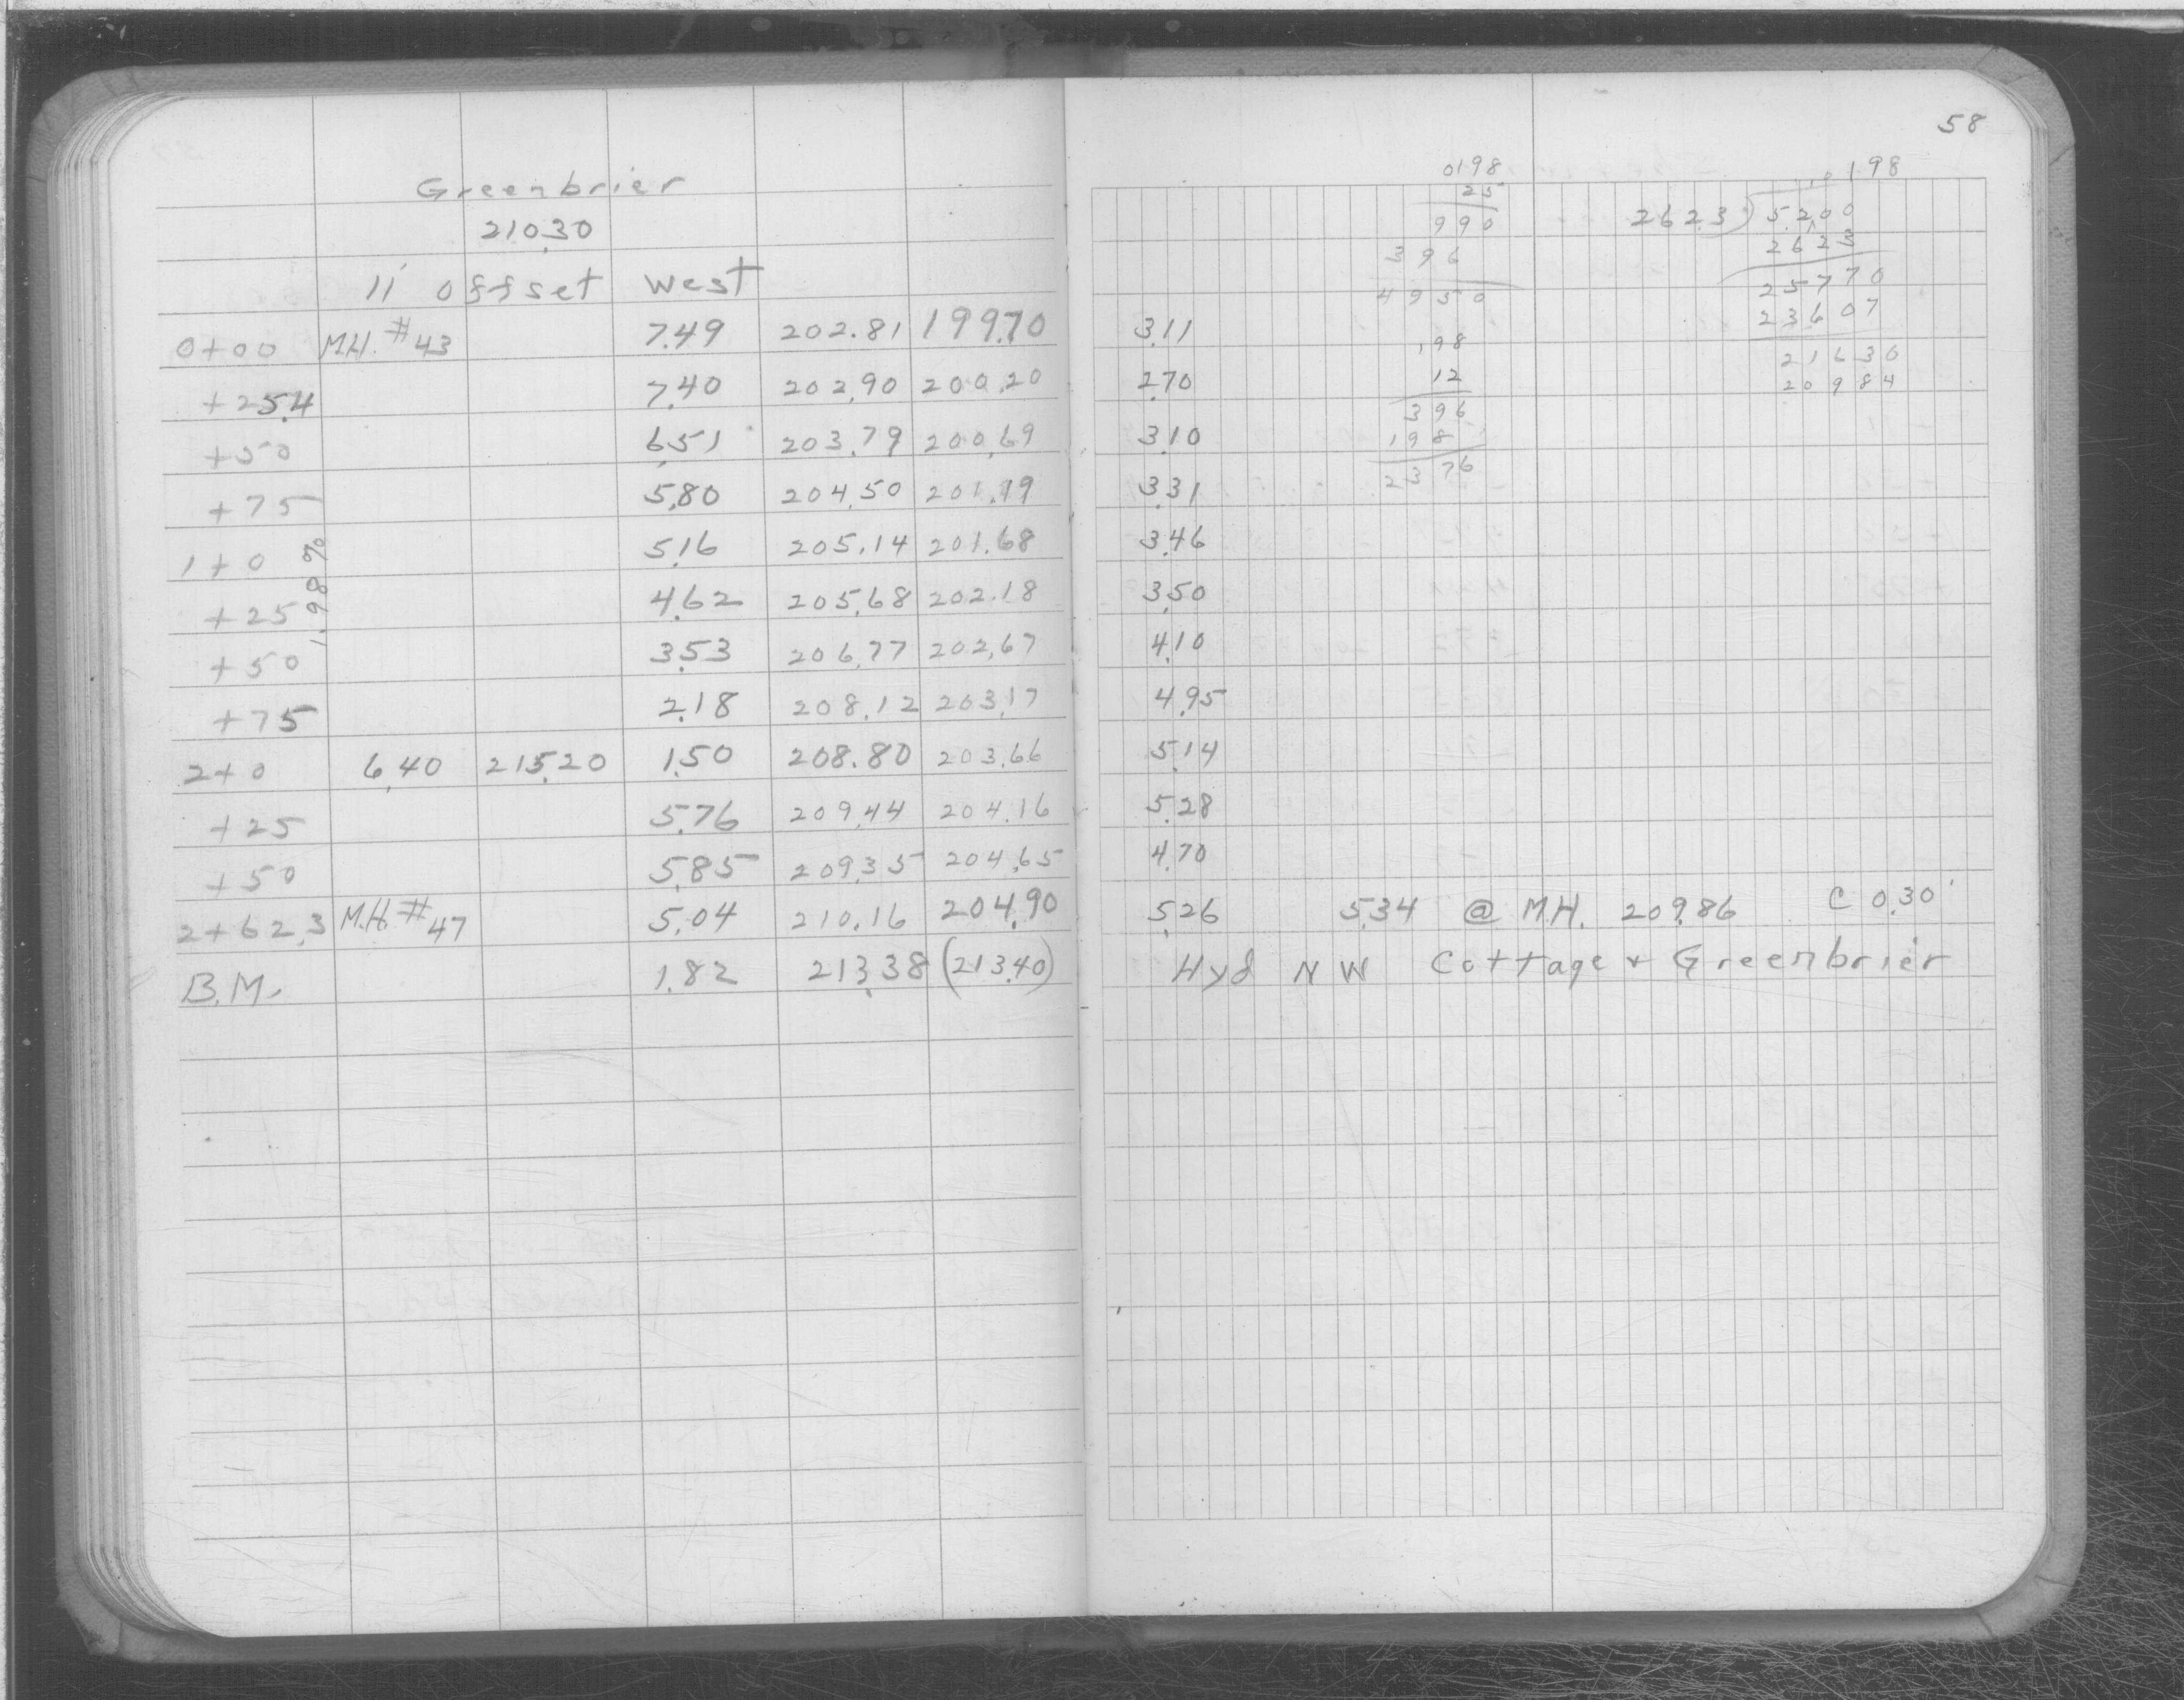 58
Greenbrier
210.30
11' offset West
0+00 M.H. #43 7.49 202.81 199.70 3.11
+25.4 7.40 202.90 200.20 2.70
+50 6.51 203.79 200.69 3.10
+75 5.80 204.50 201.19 3.31
1+0 5.16 205.14 201.68 3.46
+25 4.62 205.68 202.18 3.50
+50 3.53 206.77 202.67 4.10
+75 2.18 208.12 203.17 4.95
2+0 6.40 215.20 1.50 208.80 203.66 5.14
+25 5.76 209.44 204.16 5.28
+50 5.85 209.35 204.65 4.70
2+62.3 M.H. #47 5.04 210.16 204.90 5.26 5.34 @ M.H. 209.86 C 0.30'
B.M. 1.82 213.38 (213.40) Hyd NW Cottage + Greenbrier
1.98%
0198
25
990
396
4950
.198
12
396
198
2376
.0198
262.3) 5.200
2623
25770
23607
21630
20984